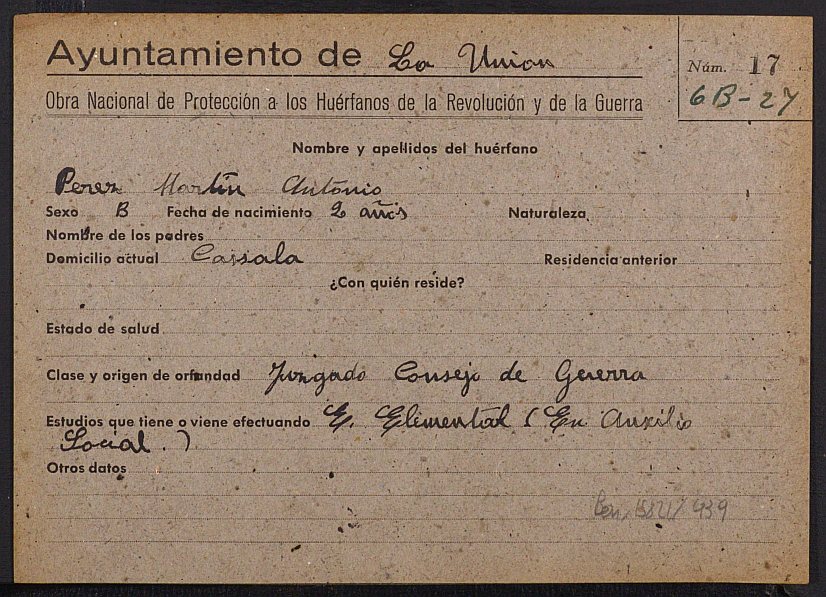 Ayuntamiento de La Union
Núm. 17
6B-27
Obra Nacional de Protección a los Huérfanos de la Revolución y de la Guerra
Nombre y apellidos del huérfano
Perez Martín Antonio
Sexo B Fecha de nacimiento 2 años Naturaleza
Nombre de los padres
Domicilio actual Cassala Residencia anterior
¿Con quién reside?
Estado de salud
Clase y origen de orfandad Juzgado Consejo de Guerra
Estudios que tiene o viene efectuando E. Elemental (En Auxilio
Social.)
Otros datos